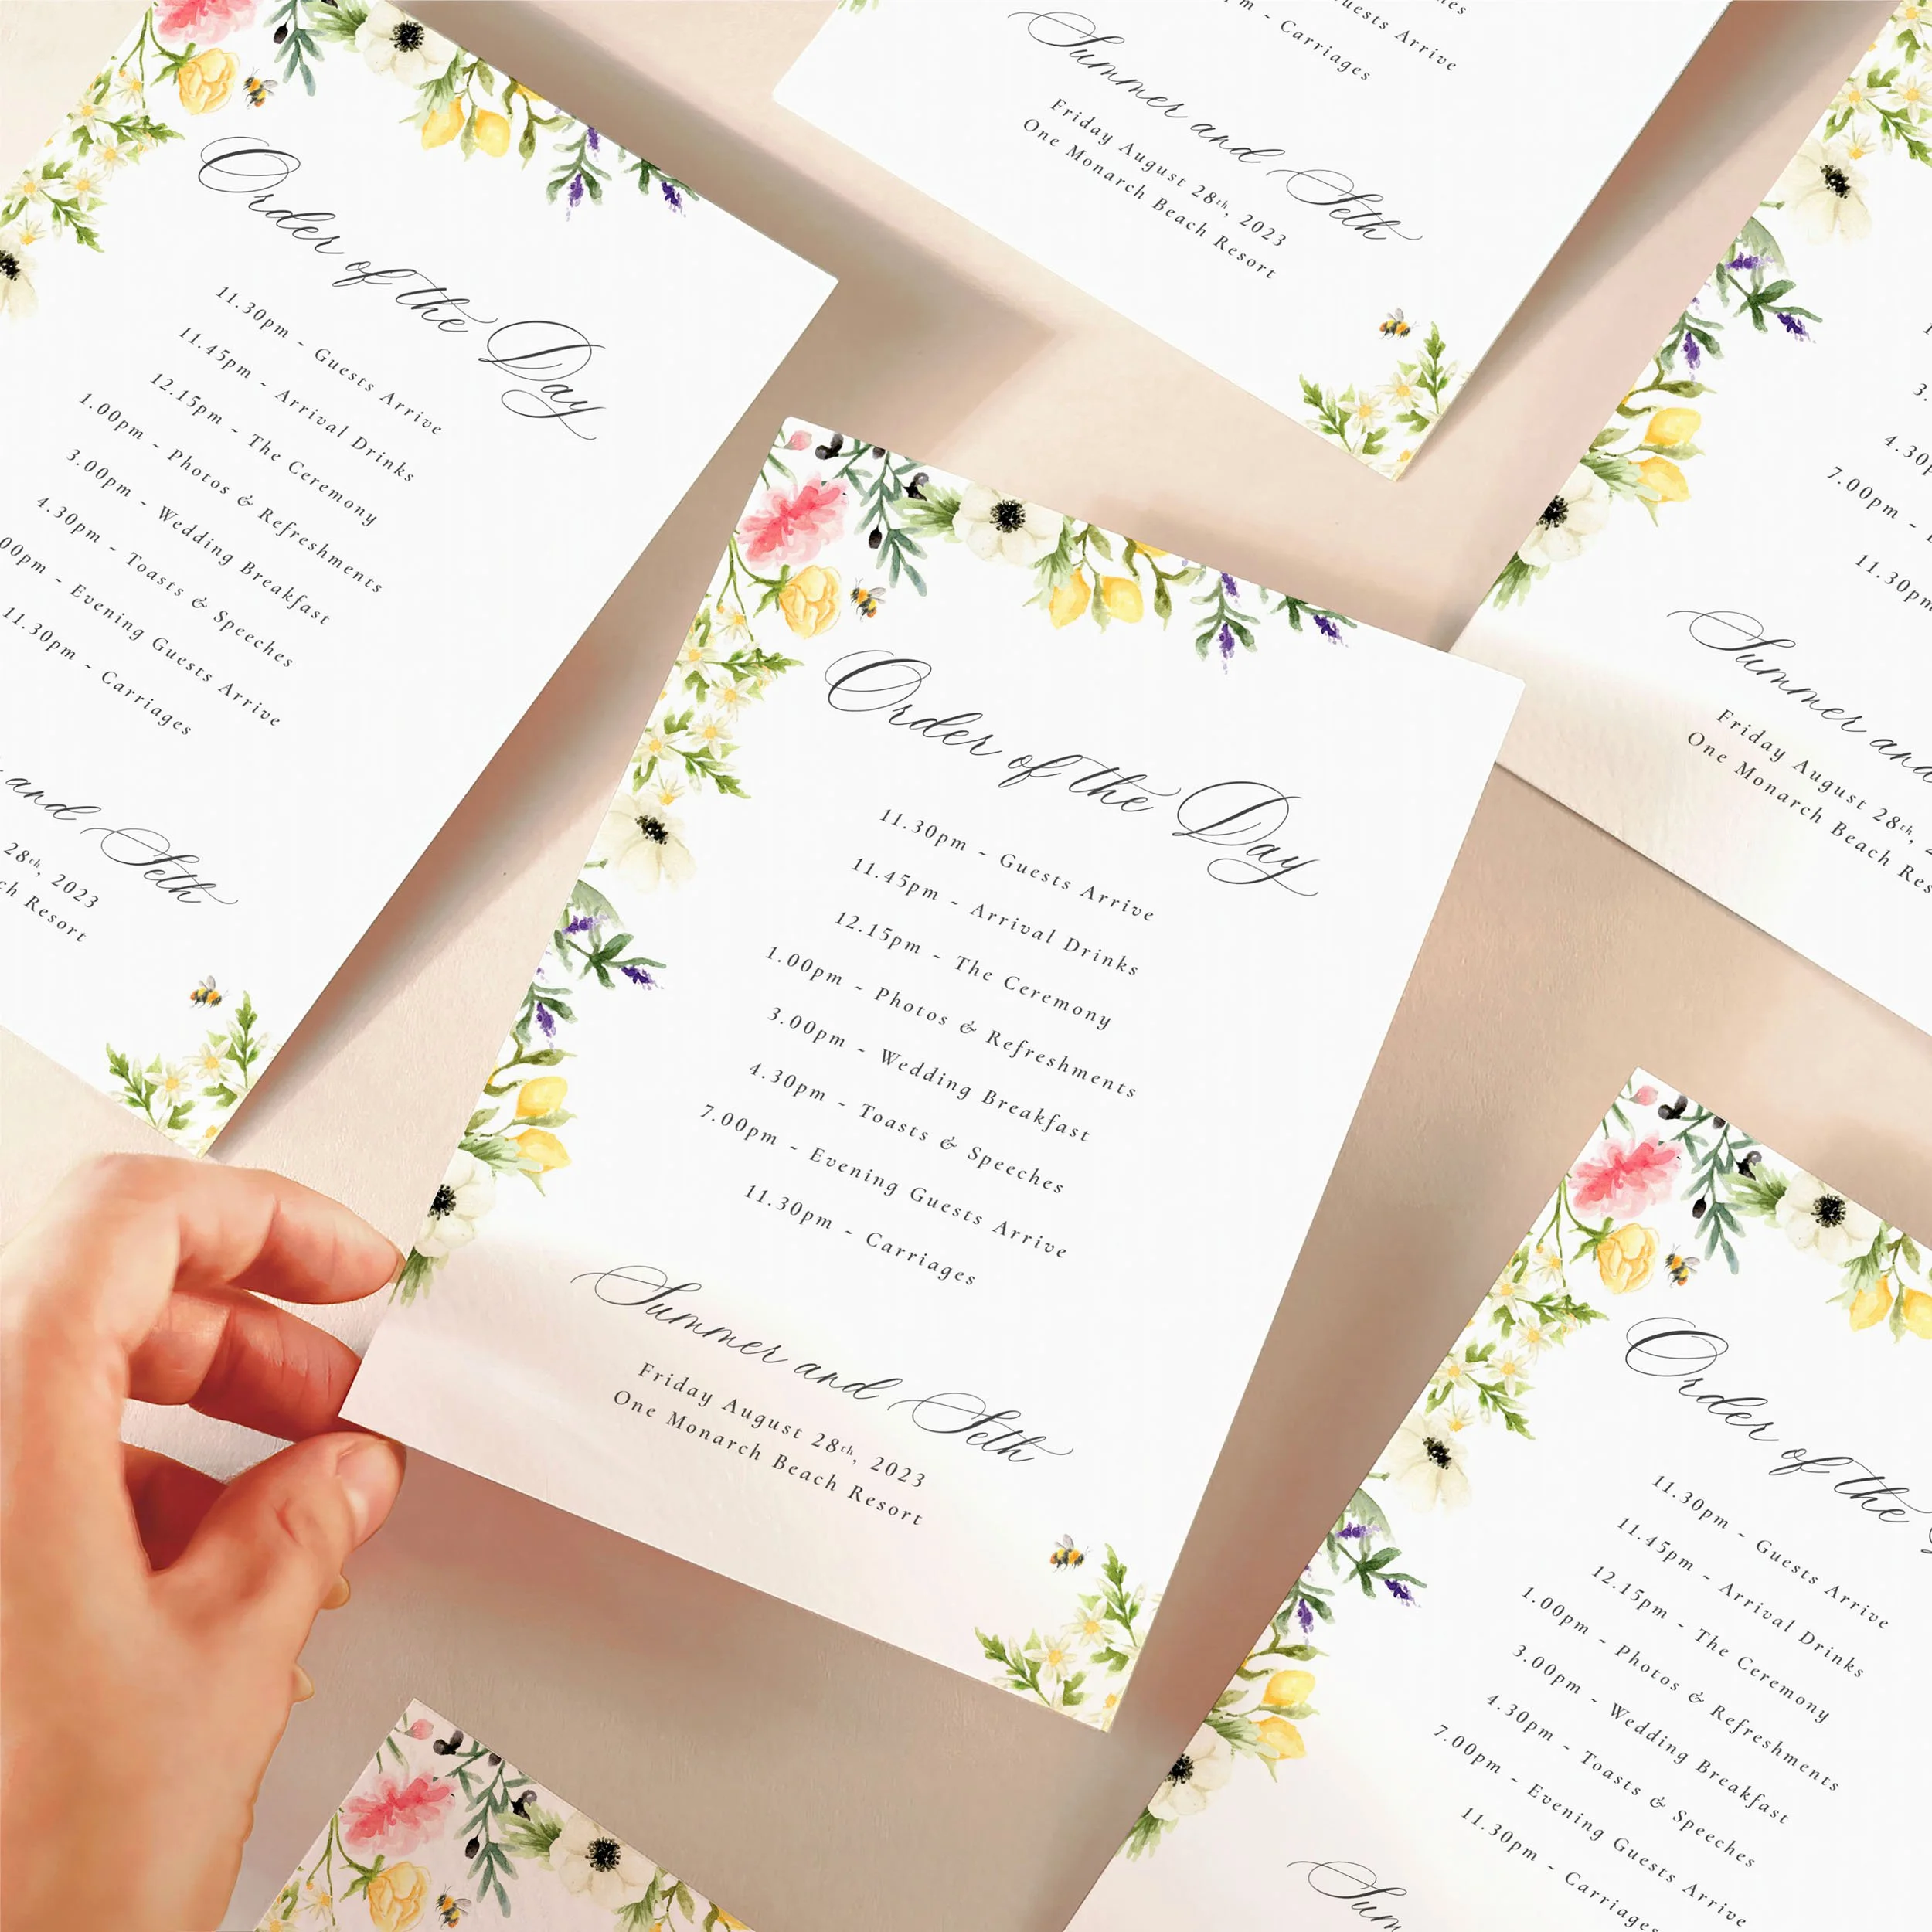 Order of the Day
11.30pm - Guests Arrive
11.45pm - Arrival Drinks
12.15pm - The Ceremony
1.00pm - Photos & Refreshments
3.00pm - Wedding Breakfast
4.30pm - Toasts & Speeches
7.00pm - Evening Guests Arrive
11.30pm - Carriages
Summer and Seth
Friday August 28th, 2023
One Monarch Beach Resort
Order of the Day
11.30pm - Guests Arrive
11.45pm - Arrival Drinks
12.15pm - The Ceremony
1.00pm - Photos & Refreshments
3.00pm - Wedding Breakfast
4.30pm - Toasts & Speeches
00pm - Evening Guests Arrive
11.30pm - Carriages
and Seth
28th, 2023
Resort
Guests Arrive
pm - Carriages
Summer and Seth
Friday August 28th, 2023
One Monarch Beach Resort
3.
4.30
7.00pm -
11.30pm
Summer and
Friday August 28th,
One Monarch Beach Res
Order of the
11.30pm - Guests Arrive
11.45pm - Arrival Drinks
12.15pm - The Ceremony
1.00pm - Photos & Refreshments
3.00pm - Wedding Breakfast
4.30pm - Toasts & Speeches
7.00pm - Evening Guests Arrive
11.30pm - Carriages
Sum